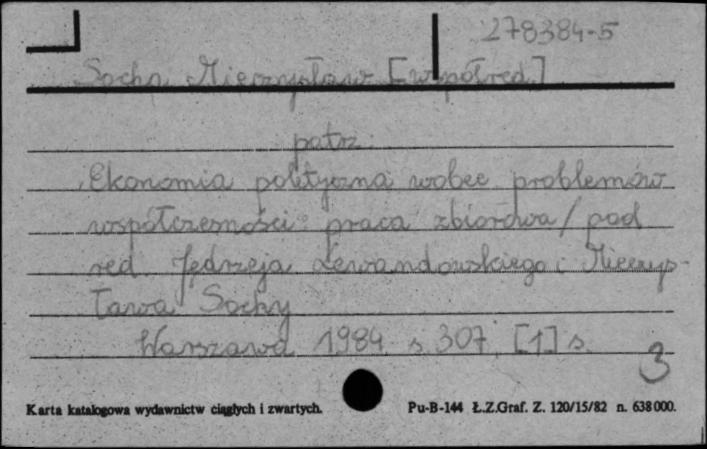 278384-5
Socha Mieczysław [współred.]
patrz
Ekonomia polityczna wobec problemów
współczesności : praca zbiorowa / pod
red. Jędrzeja Lewandowskiego i Mieczys-
ława Sochy
Warszawa 1984 s. 307, [1] s.
3
Karta katalogowa wydawnictw ciągłych i zwartych.
Pu-B-144 Ł.Z.Graf. Z. 120/15/82 n. 638000.